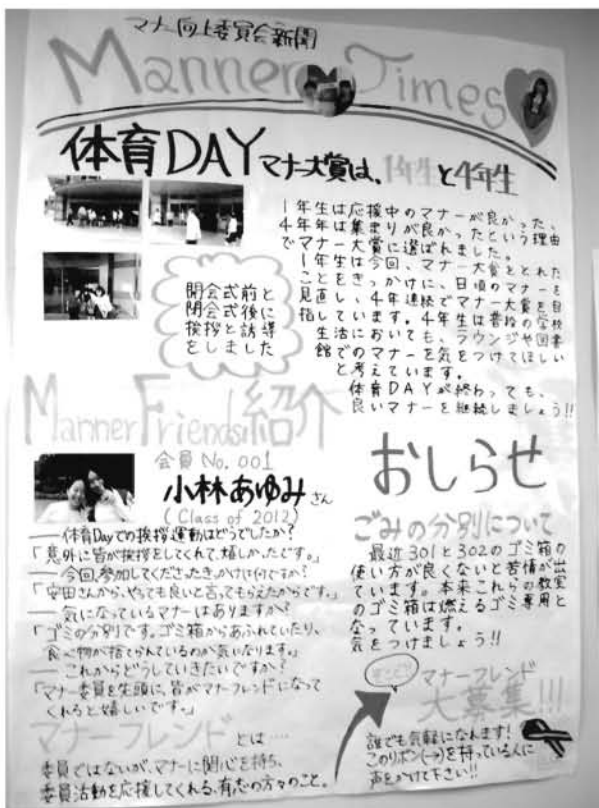 マナー向上委員会新聞
Manner Times
体育DAY マナー大賞は、1年生と4年生
1年生は応援中のマナーが良かった、
4年年は集まりが良かったという理由
でマナー大賞に選ばれました。
1年生は今回、マナー大賞をとれた
ことをきっかけに、日頃のマナーを
見直し、4年連続でマナー大賞を目
指しています。4年生は普段の学校
生活においても、ラウンジや図書
館でのマナーを気をつけてほしい
と考えています。
体育DAYが終わっても、
良いマナーを継続しましょう!!
開会式前と
閉会式後に
挨拶と誘導
をしました
Manner Friends紹介
会員 No.001
小林あゆみさん
(Class of 2012)
― 体育Dayでの挨拶運動はどうでしたか?
「意外に皆が挨拶をしてくれて、嬉しかったです。」
― 今回、参加してくださったきっかけは何ですか?
「安田さんから、やっても良いと言ってもらえたからです。」
― 気になっているマナーはありますか?
「ゴミの分別です。ゴミ箱からあふれていたり、
食べ物が捨てられているのが気になります。」
― これからどうしていきたいですか?
「マナー委員を先頭に、皆がマナーフレンドになって
くれると嬉しいです。」
マナーフレンドとは……
委員ではないが、マナーに関心を持ち、
委員活動を応援してくれる、有志の方々のこと。
おしらせ
ごみの分別について
最近301と302のゴミ箱の
使い方が良くないと苦情が出
ています。本来これらの教室
のゴミ箱は燃えるゴミ専用と
なっています。
気をつけましょう!!
マナーフレンド
大募集!!!
誰でも気軽になれます!
このリボン(→)を持っている人に
声をかけて下さい!!